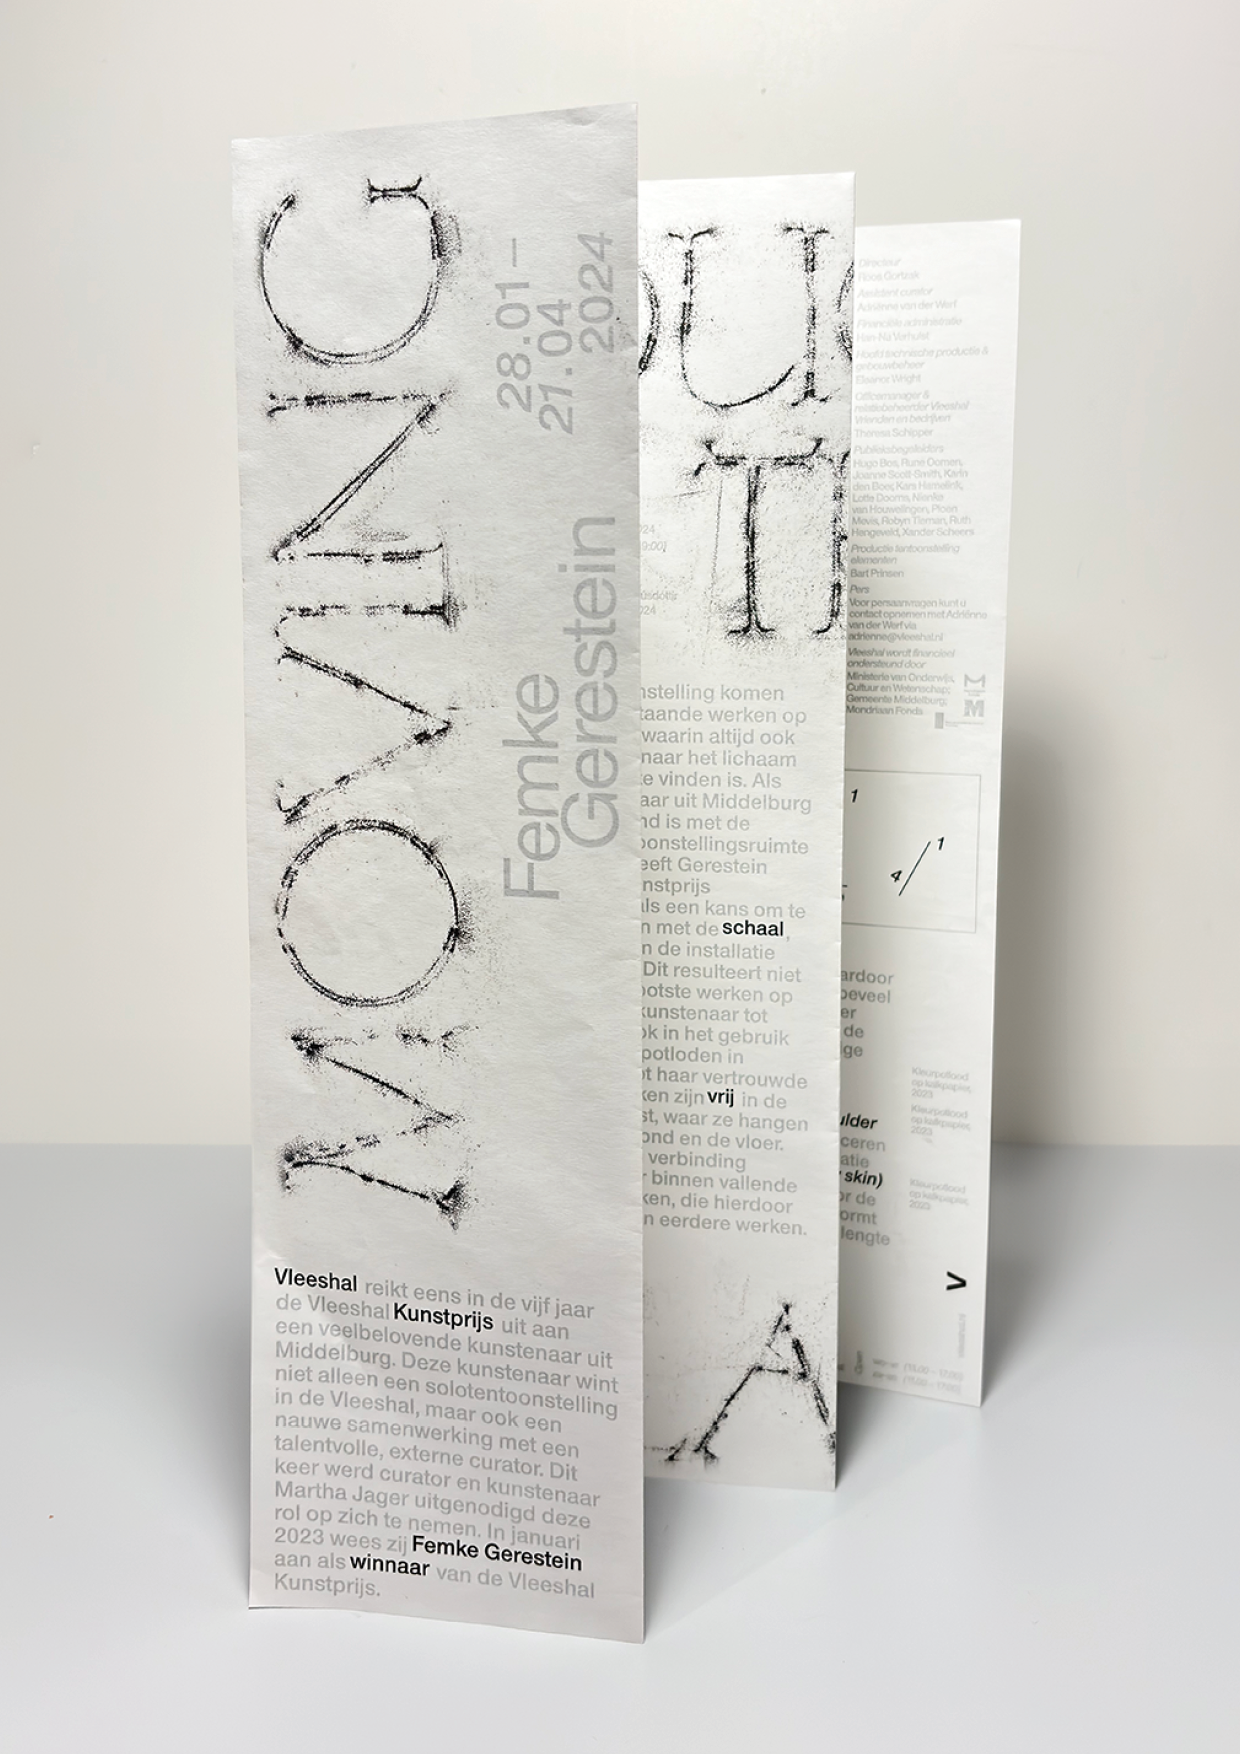 MOVING
28.01 –
21.04
2024
Femke
Gerestein
Vleeshal reikt eens in de vijf jaar
de Vleeshal Kunstprijs uit aan
een veelbelovende kunstenaar uit
Middelburg. Deze kunstenaar wint
niet alleen een solotentoonstelling
in de Vleeshal, maar ook een
nauwe samenwerking met een
talentvolle, externe curator. Dit
keer werd curator en kunstenaar
Martha Jager uitgenodigd deze
rol op zich te nemen. In januari
2023 wees zij Femke Gerestein
aan als winnaar van de Vleeshal
Kunstprijs.
OU
T
nstelling komen
taande werken op
waarin altijd ook
naar het lichaam
te vinden is. Als
aar uit Middelburg
nd is met de
oonstellingsruimte
eeft Gerestein
nstprijs
als een kans om te
n met de schaal,
n de installatie
Dit resulteert niet
ootste werken op
kunstenaar tot
ok in het gebruik
potloden in
ot haar vertrouwde
ken zijn vrij in de
st, waar ze hangen
ond en de vloer.
verbinding
r binnen vallende
ken, die hierdoor
n eerdere werken.
A
Directeur
Roos Gortzak
Assistent curator
Adriënne van der Werf
Financiële administratie
Han-Na Verhulst
Hoofd technische productie &
gebouwbeheer
Eleanor Wright
Officemanager &
relatiebeheerder Vleeshal
Vrienden en bedrijven
Theresa Schipper
Publieksbegeleiders
Hugo Bes, Rune Oomen,
Joanne Scott-Smith, Karin
den Boer, Kars Hamelink,
Lotte Dooms, Nienke
van Houwelingen, Ploen
Mevis, Robyn Tieman, Ruth
Hengeveld, Xander Scheers
Productie tentoonstelling
elementen
Bart Prinsen
Pers
Voor persaanvragen kunt u
contact opnemen met Adriënne
van der Werf via
adrienne@vleeshal.nl
Vleeshal wordt financieel
ondersteund door
Ministerie van Onderwijs,
Cultuur en Wetenschap;
Gemeente Middelburg;
Mondriaan Fonds
1
4/1
ardoor
oeveel
er
de
lge
ulder
ceren
atie
skin)
or de
ormt
lengte
Kleurpotlood
op kalkpapier,
2023
Kleurpotlood
op kalkpapier,
2023
Kleurpotlood
op kalkpapier,
2023
>
Open